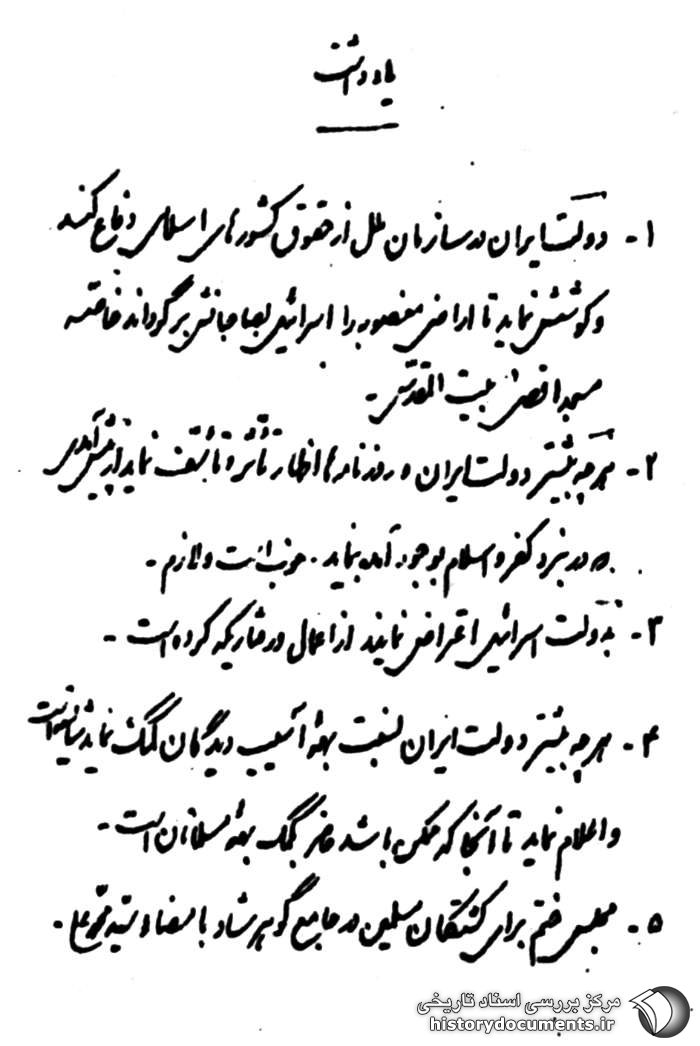 یادداشت
۱- دولت ایران در سازمان ملل از حقوق کشورهای اسلامی دفاع کند
و کوشش نماید تا اراضی مغصوبه را اسرائیل بصاحبانش برگرداند خاصه
مسجد اقصی بیت المقدس -
۲- هرچه بیشتر دولت ایران و روزنامه‌ها اظهار تأثر و تأسف نماید از پیش آمدی
که در نبرد کفر و اسلام بوجود آمده نماید . خوب است و لازم -
۳- بدولت اسرائیل اعتراض نمایند از اعمال و رفتاریکه کرده است -
۴- هرچه بیشتر دولت ایران نسبت بهمهٔ آسیب دیدگان کمک نماید شایسته است
و اعلام نماید تا آنجا که ممکن باشد حاضر بکمک بهمهٔ مسلمانان است -
۵- مجلس ختم برای کشتگان مسلمین در جامع گوهرشاد با امضاء سید
مرکز بررسی اسناد تاریخی
historydocuments.ir